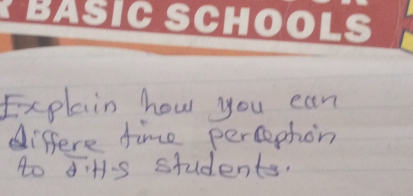 R BASIC SCHOOLS
Explain how you can
differe time perception
to J.H.S students.